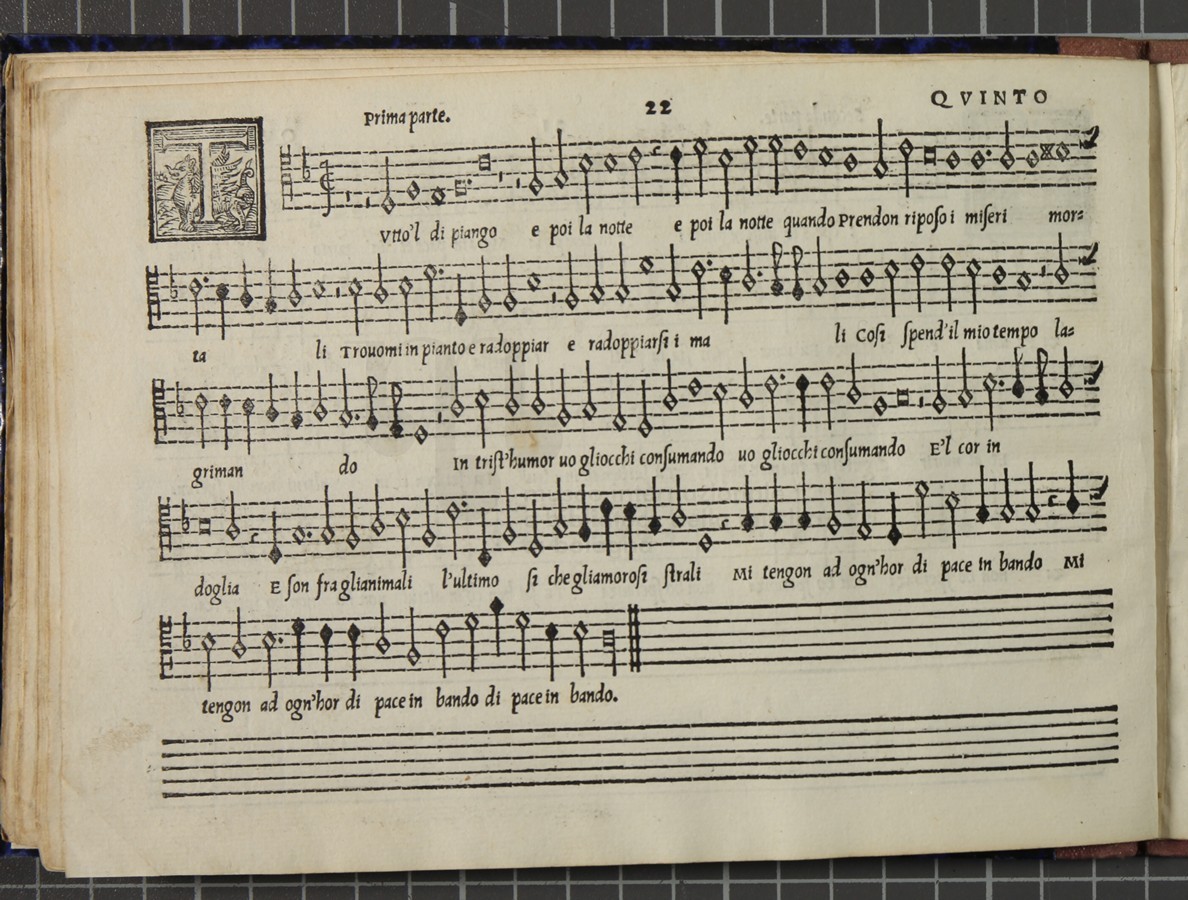 Prima parte.
22
QVINTO
T
Vtto'l di piango e poi la notte e poi la notte quando Prendon riposo i miseri mor=
ta li Trouomi in pianto e radoppiar e radoppiarsi i ma li Cosi spend'il mio tempo la=
griman do In trist'humor uo gliocchi consumando uo gliocchi consumando E'l cor in
doglia E son fra glianimali l'ultimo si che gliamorosi strali Mi tengon ad ogn'hor di pace in bando Mi
tengon ad ogn'hor di pace in bando di pace in bando.